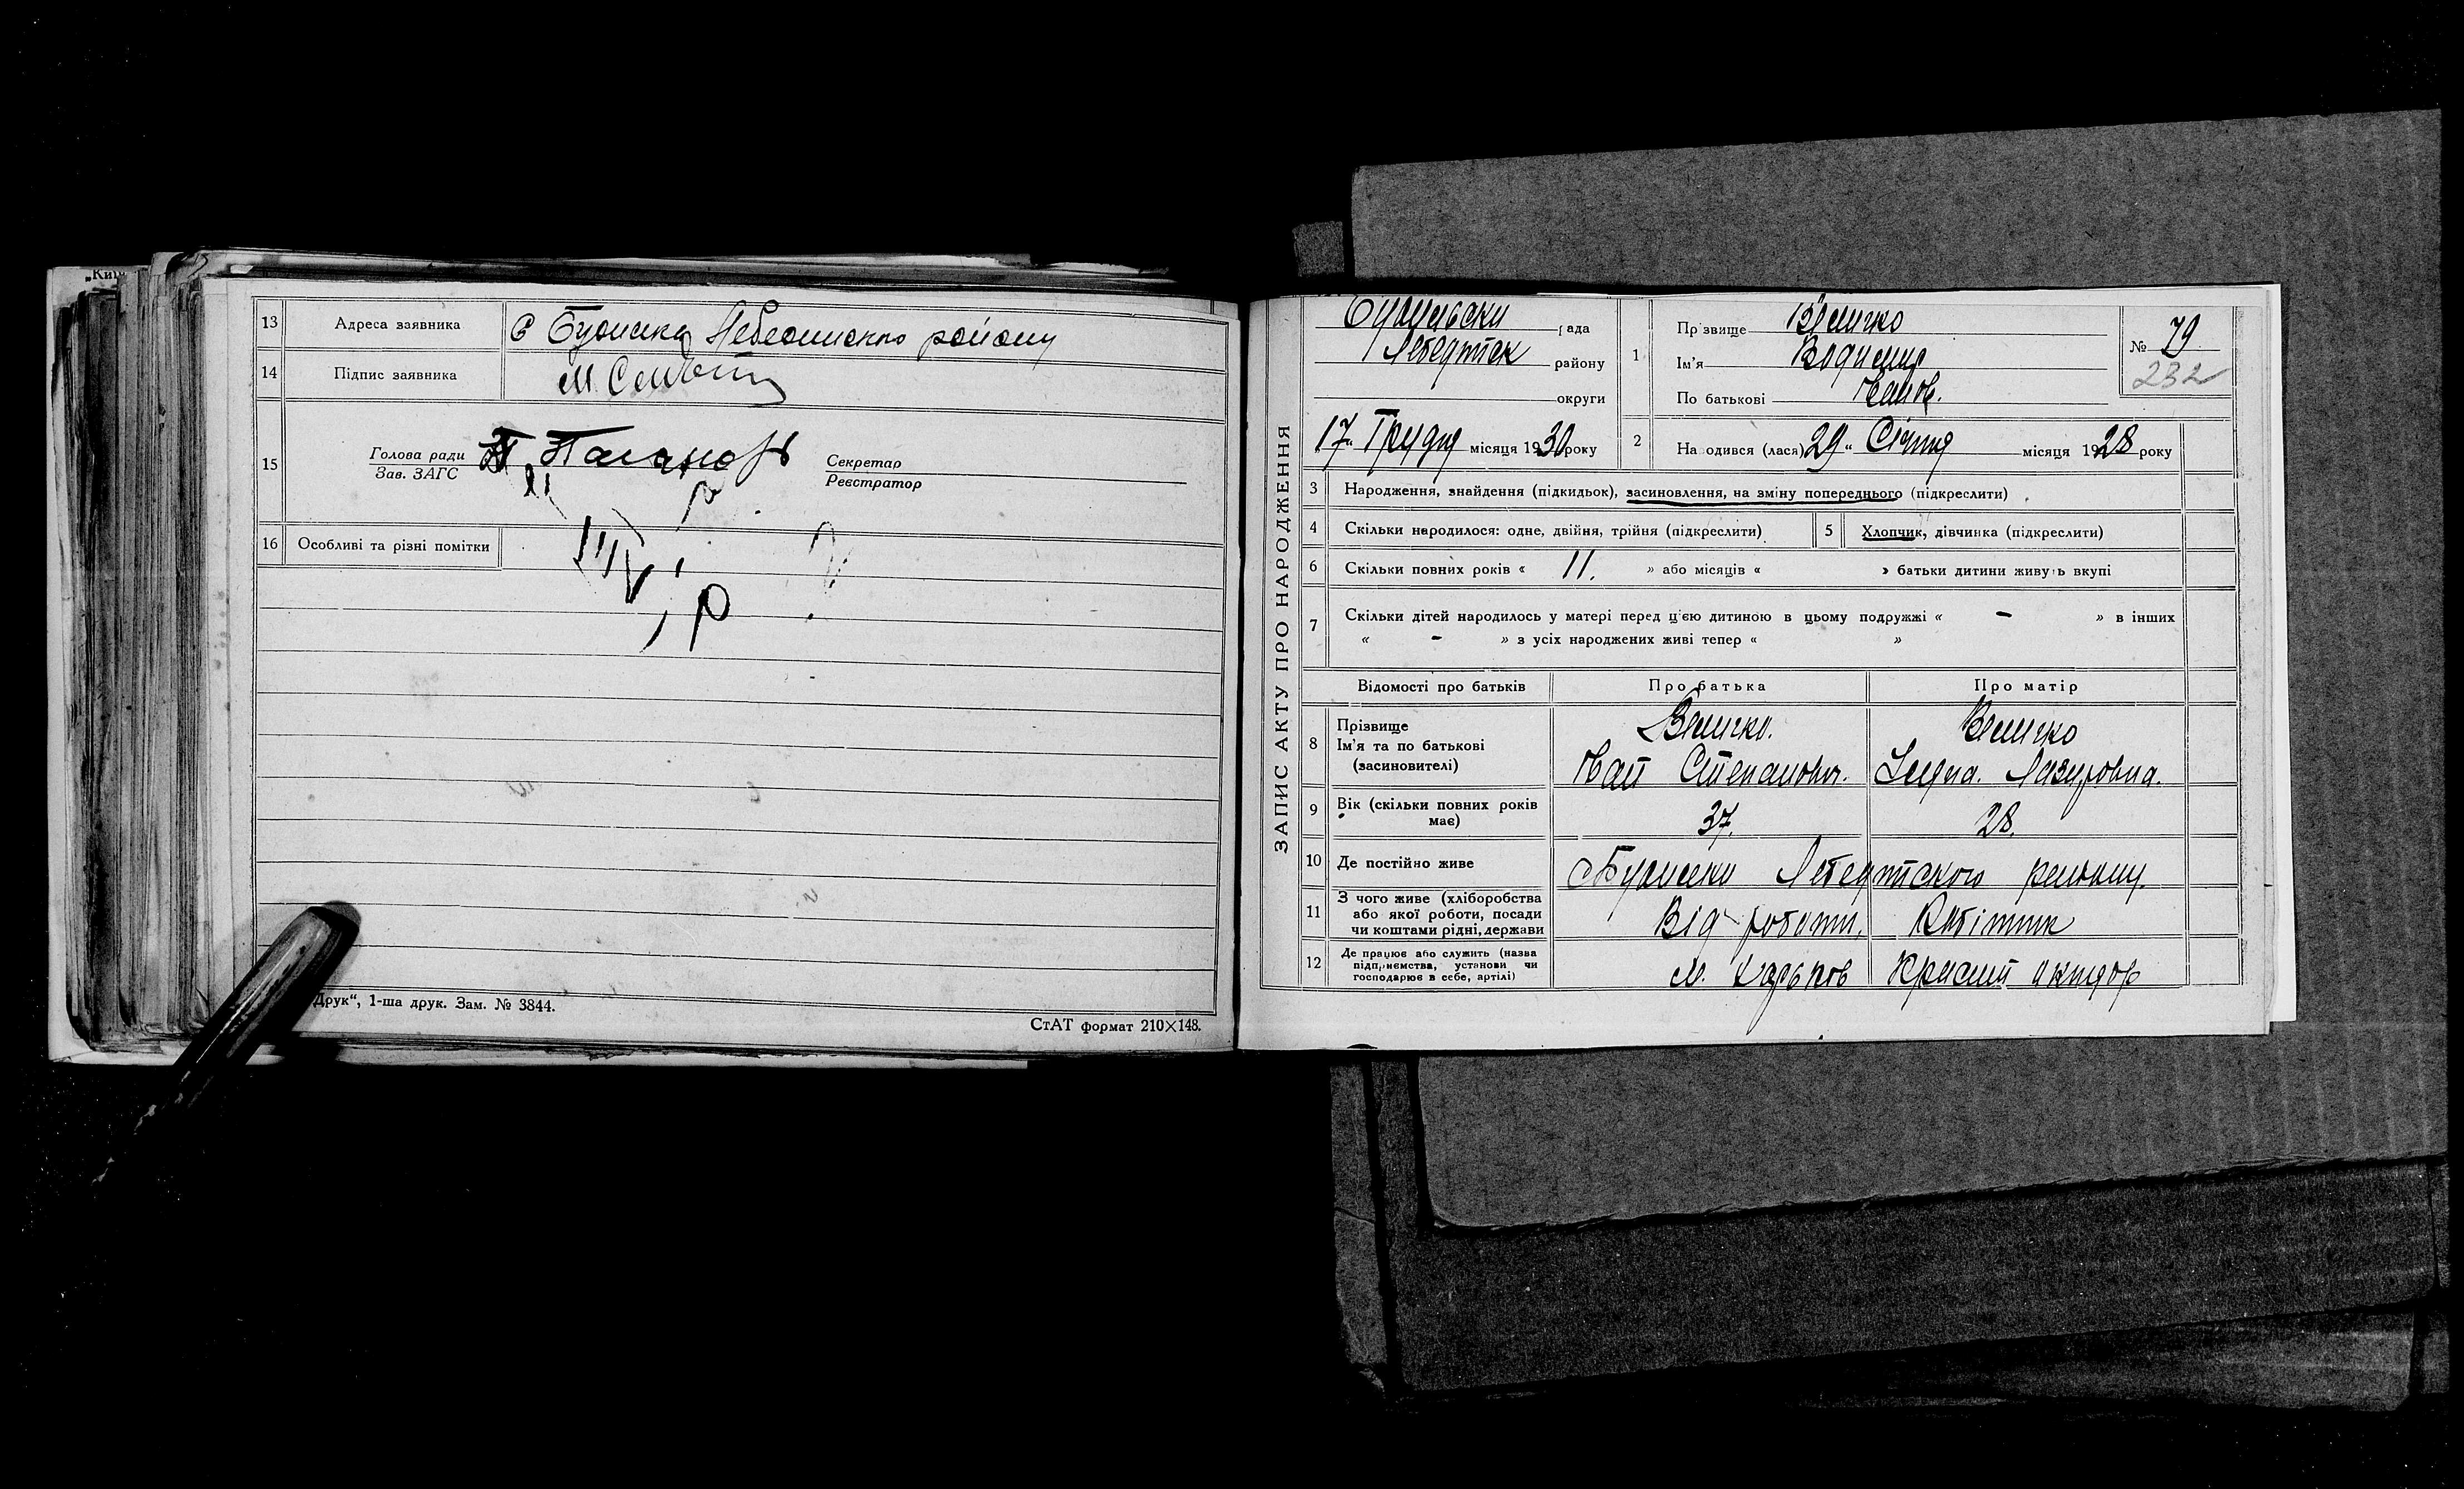 „Київ
13 Адреса заявника С Будилка Лебединского району
14 Підпис заявника М.
15 Голова ради
Зав. ЗАГС
Секретар
Реєстратор
16 Особливі та різні помітки
Друк“, 1-ша друк. Зам. № 3844.
СтАТ формат 210×148.
ЗАПИС АКТУ ПРО НАРОДЖЕННЯ
рада
району
округи
17 Грудня місяця 1930 року
1 Прізвище Величко
Ім'я
По батькові Іванов.
№ 79
232
2 Народився (лася) 29 „ Січня місяця 1928 року
3 Народження, знайдення (підкидьок), засиновлення, на зміну попереднього (підкреслити)
4 Скільки народилося: одне, двійня, трійня (підкреслити)
5 Хлопчик, дівчинка (підкреслити)
6 Скільки повних років « 11. » або місяців « » батьки дитини живуть вкупі
7 Скільки дітей народилось у матері перед ц'єю дитиною в цьому подружжі « – » в інших
« – » з усіх народжених живі тепер « »
Відомості про батьків Про батька Про матір
8 Прізвище
Ім'я та по батькові
(засиновителі)
Величко. Величко
Іван Степанович. Лазаровна.
9 Вік (скільки повних років має) 37. 28.
10 Де постійно живе Лебединского району.
11 З чого живе (хліборобства або якої роботи, посади чи коштами рідні, держави Від роботи. Робітник
12 Де працює або служить (назва підприємства, установи чи господарює в себе, артілі) м. Харьков Красний